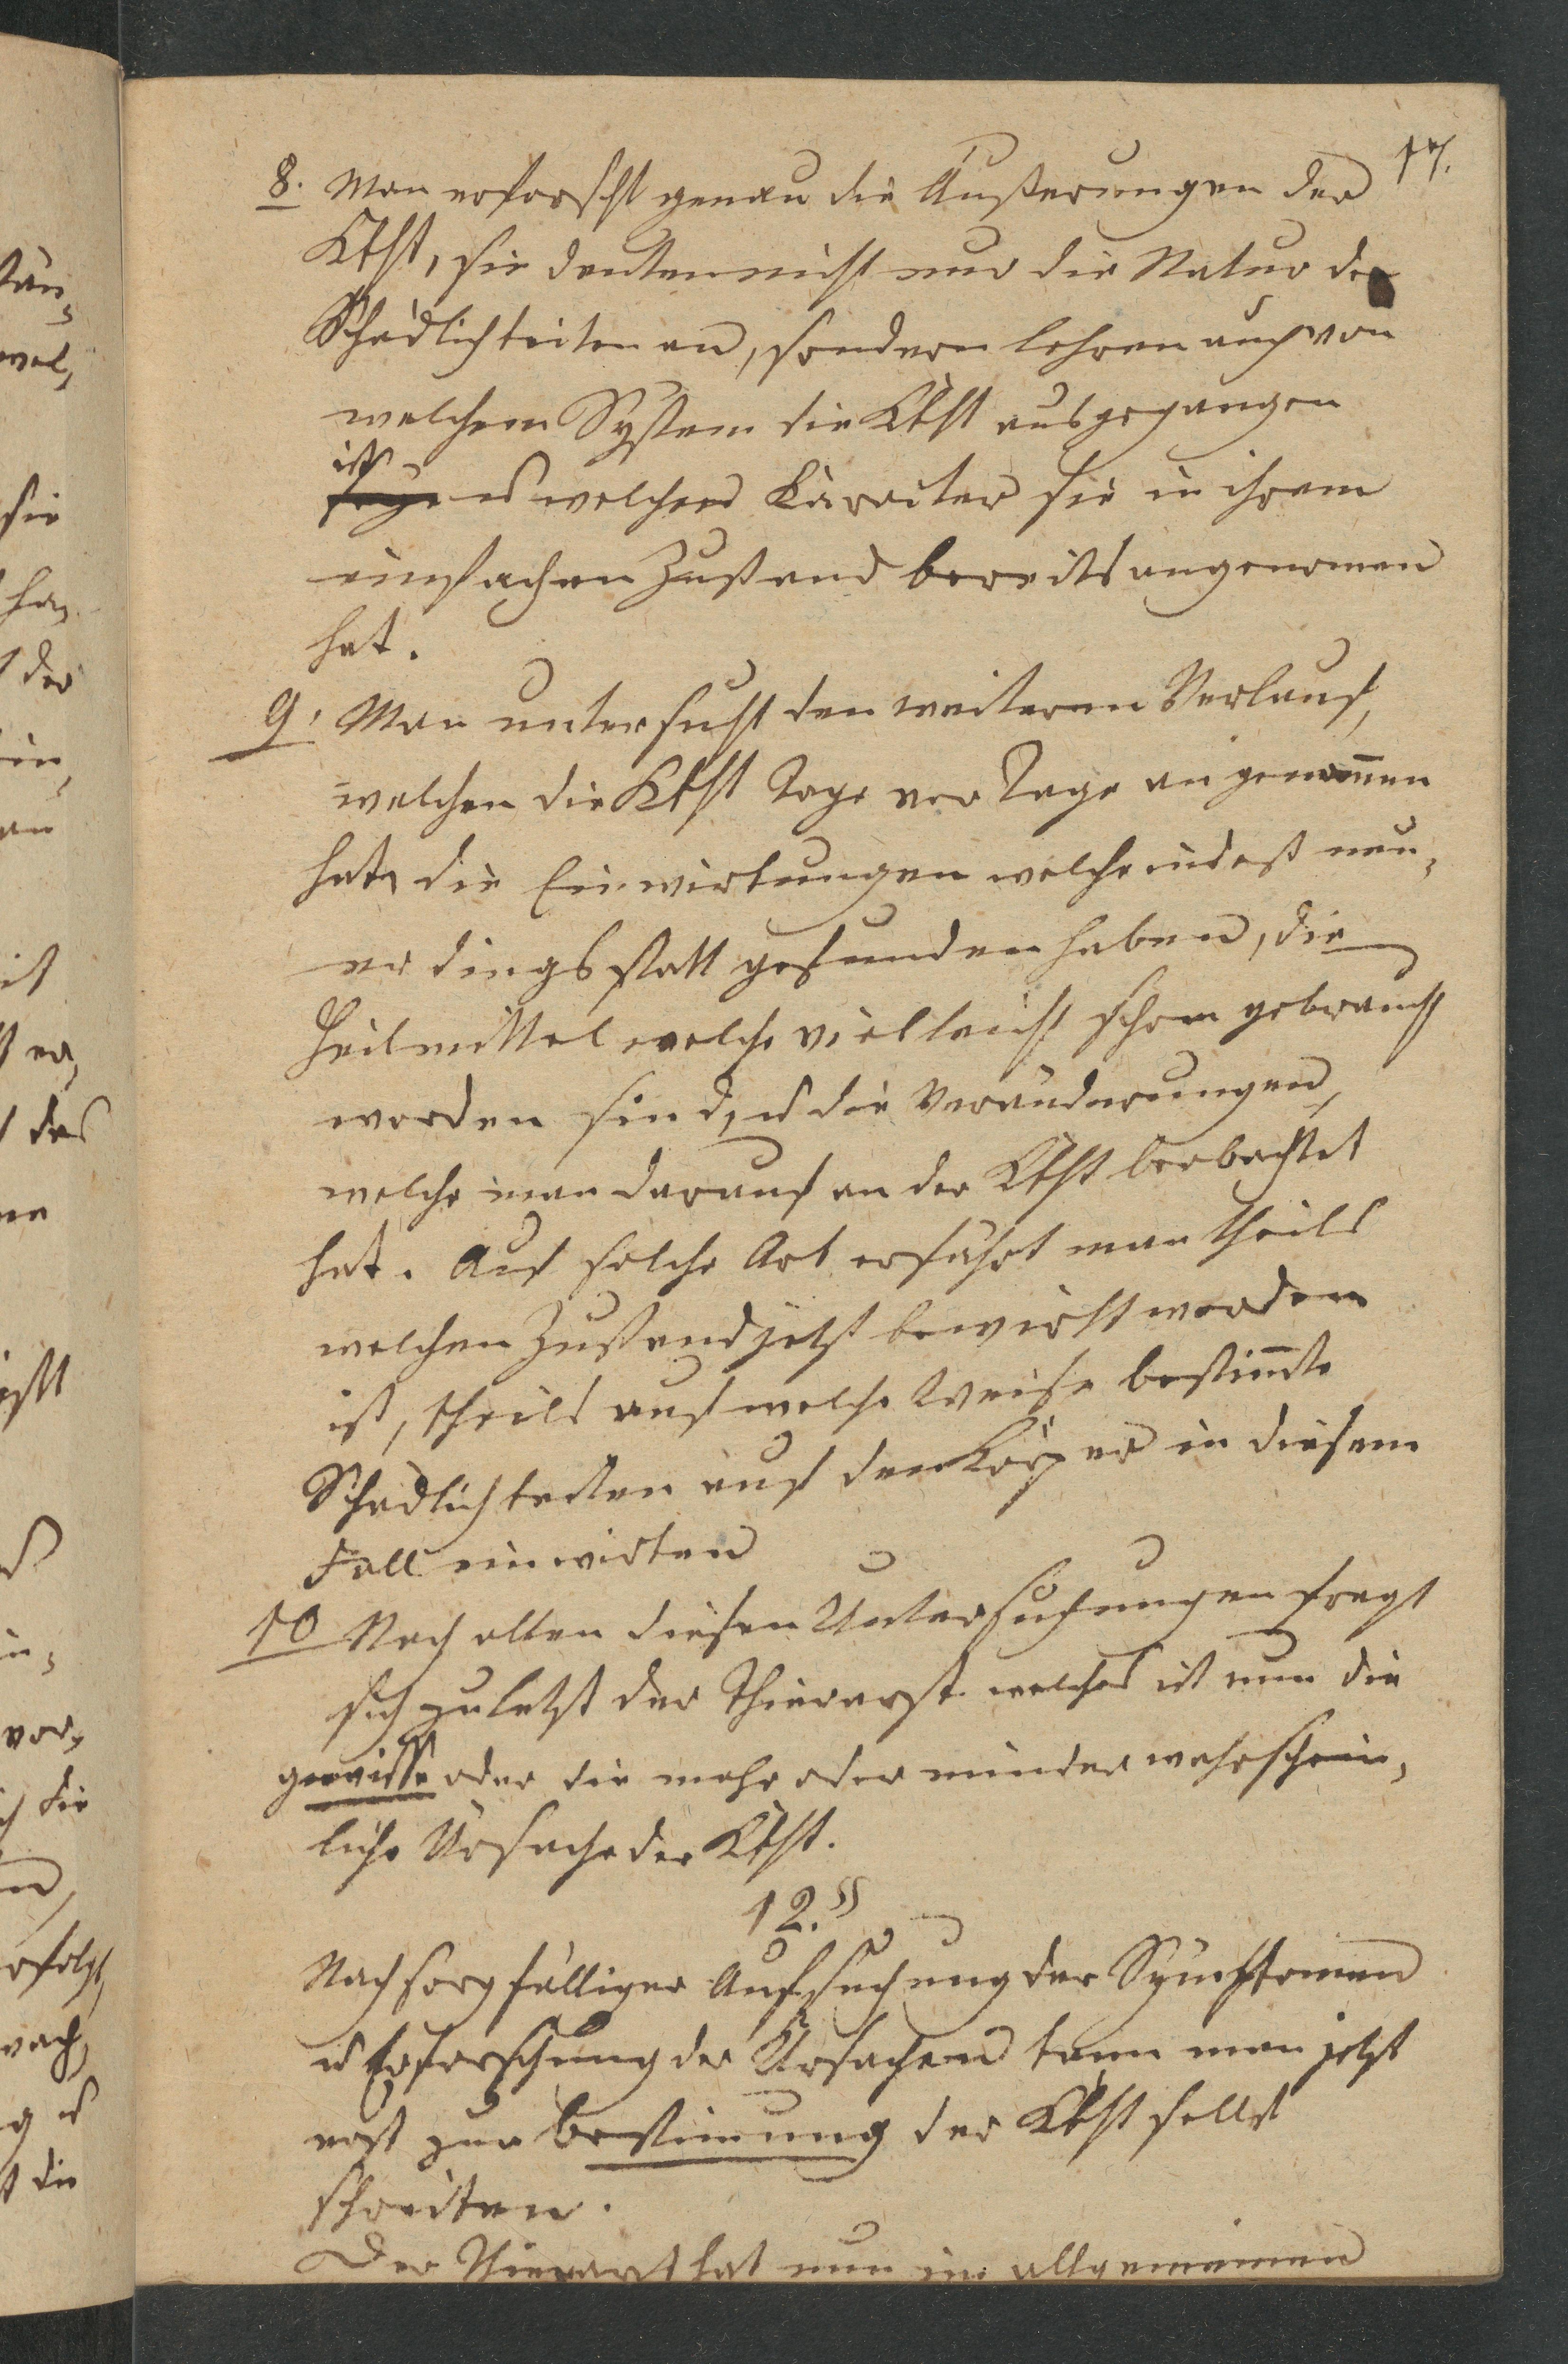 17.
8. Man erforscht genau die Äußerungen der
Kkht, sie deuten nicht nur die Natur der
Schädlichkeiten an, sondern lehren auch von
welchem System die Kkht ausgegangen
ist
u welchen Karacter sie in ihrem
einfachen Zustand bereits angenomen
hat.
9. Man untersucht den weiteren Verlauf,
welchen die Kkht Tage vor Tage angenommen
hat, die Einwirkungen welche indeß neu-
erdings statt gefunden haben, die
Heilmittel welche vielleicht schon gebraucht
worden sind, u die Veränderungen,
welche man darauf an der Kkht beobachtet
hat. Auf solche Art erfährt man theils
welchen Zustand jetzt bewirkt worden
ist, theils auf welche Weise bestimte
Schädlichkeiten auf den Körper in diesem
Fall einwirken
10 Nach allen diesen Untersuchungen fragt
sich zuletzt der Thierarzt welches ist nun die
gewisse oder die mehr oder minder wahrschein-
liche Ursache der Kkht.
12.§
Nach sorgfälliger Aufsuchung der Symptomen
u Erforschung der Ursachen kann man jetzt
erst zur Bestimung der Kkht selbst
schreiten.
Der Thierarzt hat nun im allgemeinen